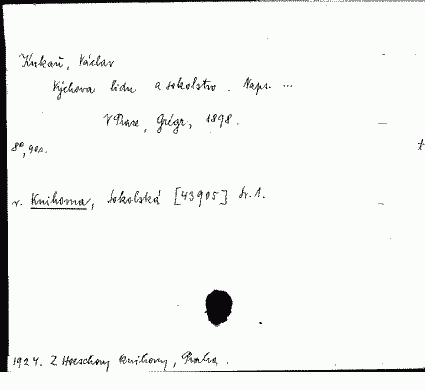 Kukaň, Václav
Výchova lidu a sokolstvo. Naps. ...
V Praze, Grégr, 1898.
8°, 90 s.
v. Knihovna, Sokolská [43905] Sv. 1.
1924. Z Hoeschovy knihovny, Praha.